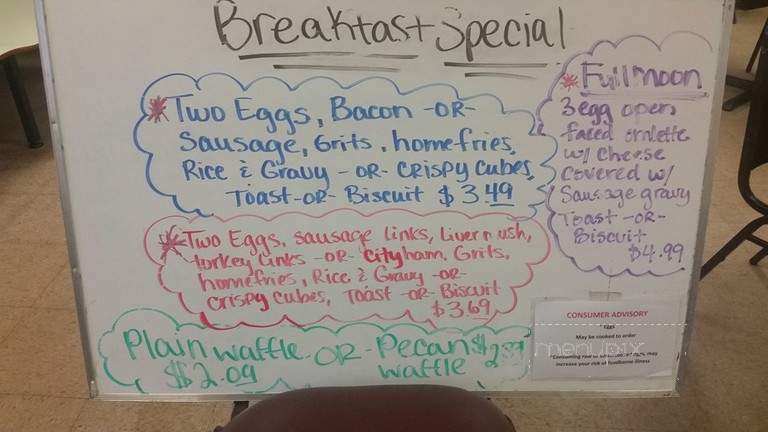 Breakfast Special
*Two Eggs, Bacon -OR-
Sausage, Grits, homefries,
Rice & Gravy - OR- CRISPY Cubes,
Toast -OR- Biscuit $3.49
*Two Eggs, sausage links, Liver n ush,
turkey links -OR- City ham, Grits,
homefries, Rice & Gravy -OR-
Crispy Cubes, Toast -OR- Biscuit
$3.69
Plain waffle -OR- Pecan
waffle
$2.09
*Full moon
3 egg open
faced omlette
w/ Cheese
Covered w/
Sausage gravy
Toast -OR-
Biscuit
$4.99
CONSUMER ADVISORY
Eggs
May be cooked to order
*Consuming raw or may
increase your risk of foodborne illness
menupix